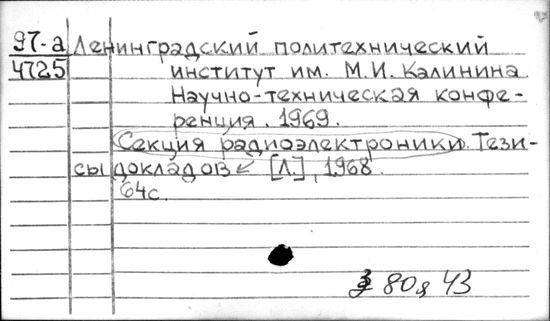 97-а Ленинградский политехнический
4725 институт им. М.И. Калинина
Научно-техническая конфе-
ренция. 1969.
Секция радиоэлектроники. Тези-
сы докладов [Л.], 1968.
64с.
З 80я43